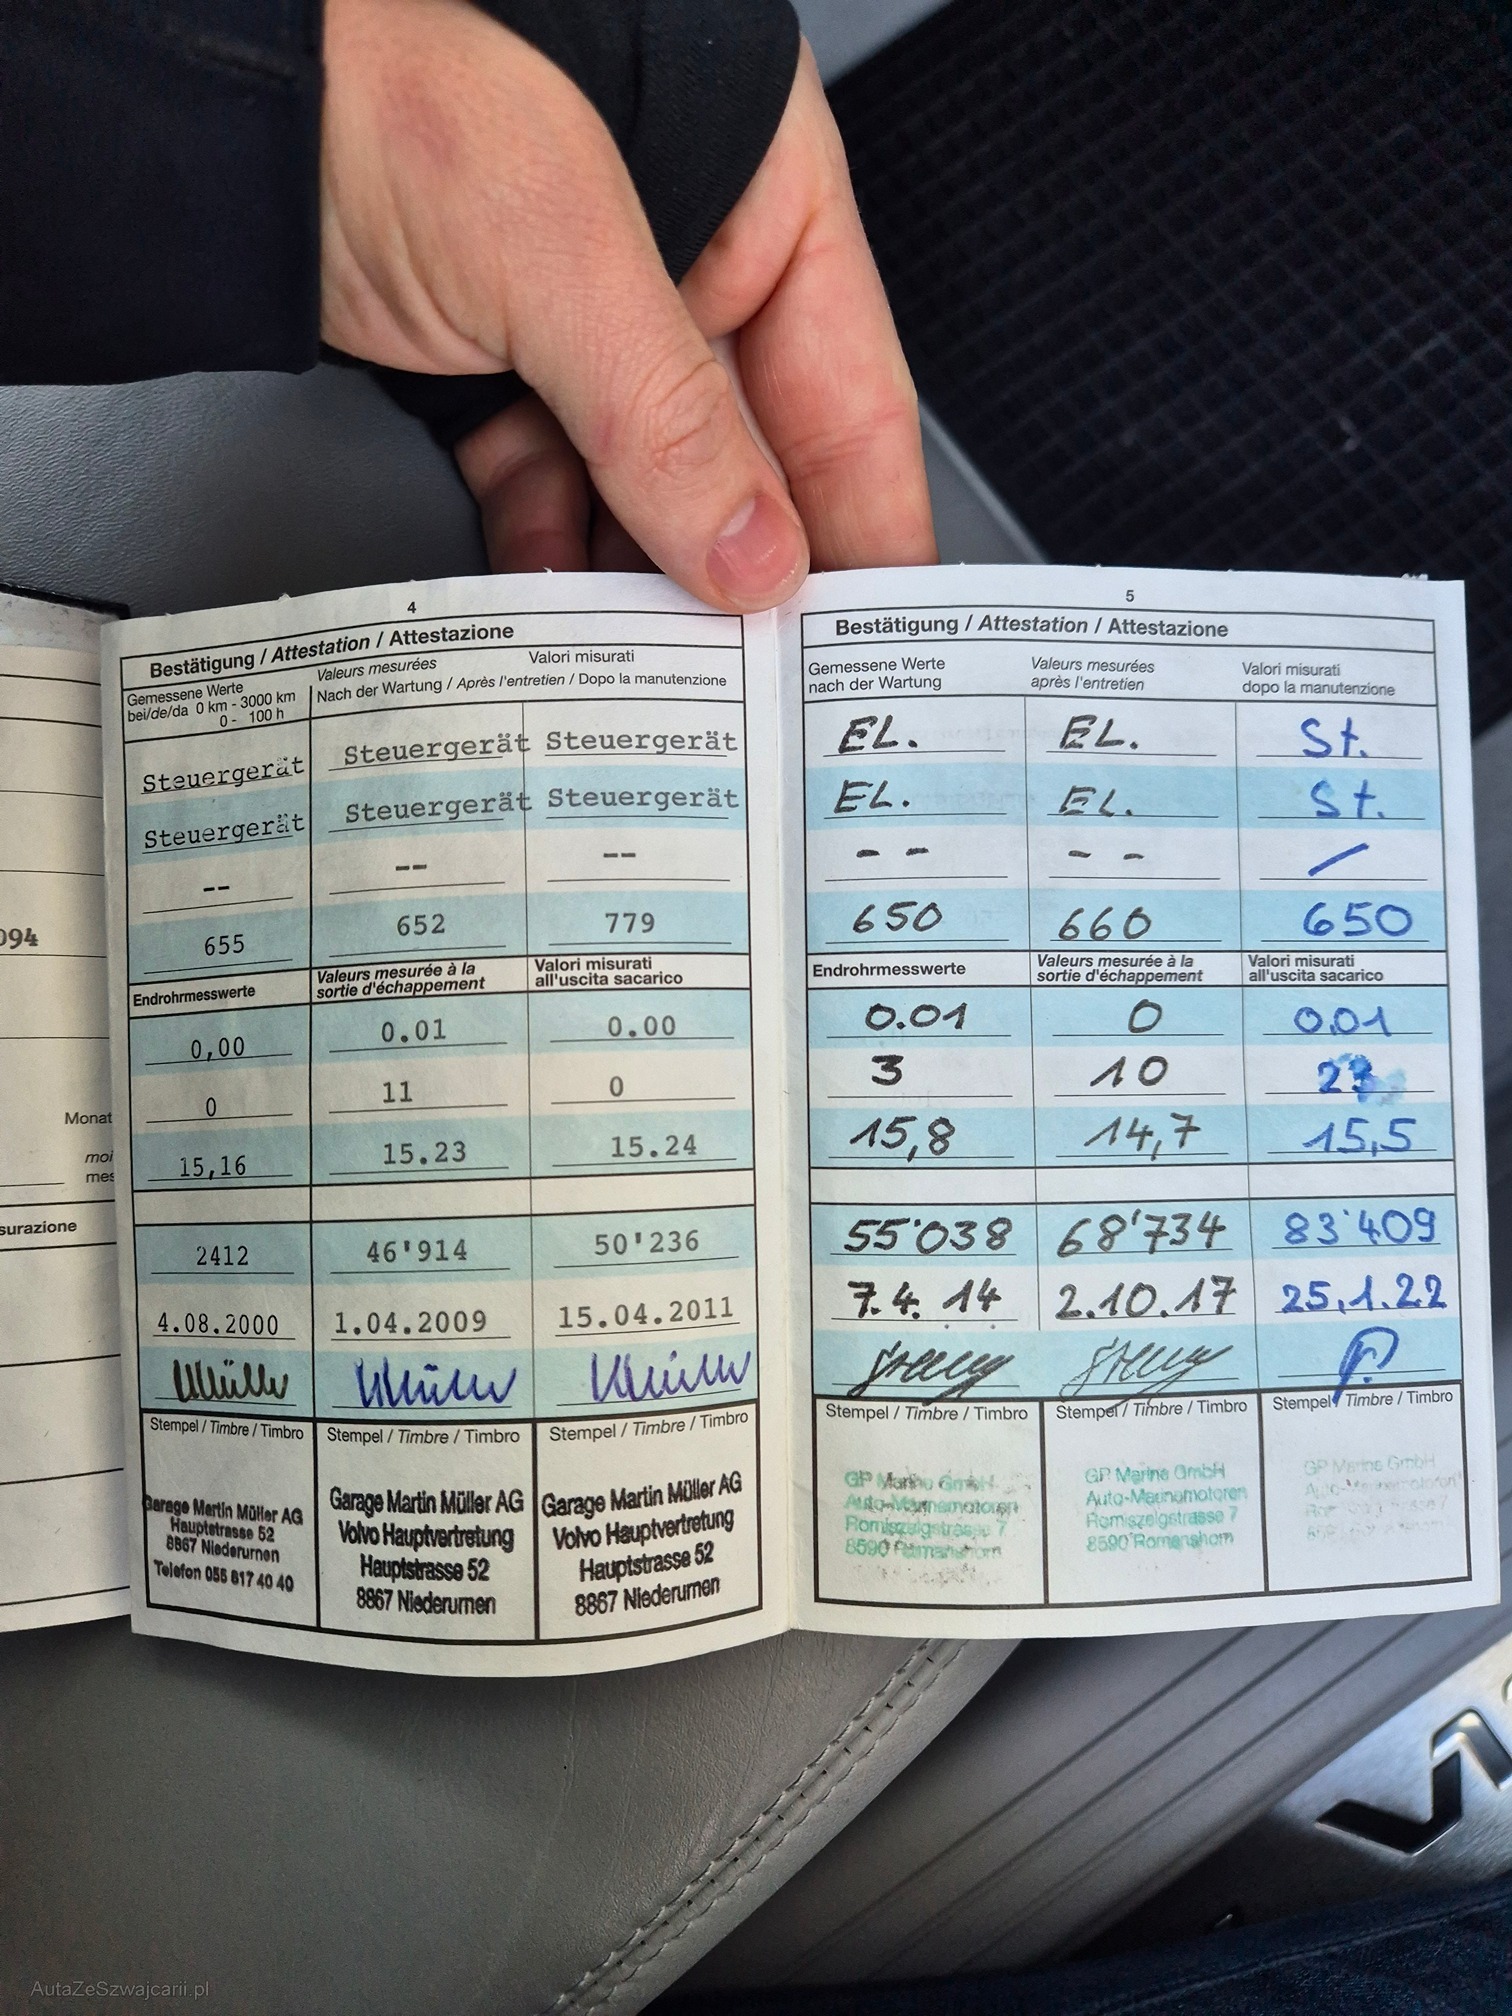 4
Bestätigung / Attestation / Attestazione
Gemessene Werte
bei/de/da 0 km - 3000 km
0 - 100 h
Valeurs mesurées
Valori misurati
Nach der Wartung / Après l'entretien / Dopo la manutenzione
Steuergerät Steuergerät Steuergerät
Steuergerät Steuergerät Steuergerät
-- -- --
655 652 779
Endrohrmesswerte
Valeurs mesurée à la
sortie d'échappement
Valori misurati
all'uscita sacarico
0,00 0.01 0.00
0 11 0
15,16 15.23 15.24
2412 46'914 50'236
4.08.2000 1.04.2009 15.04.2011
Stempel / Timbre / Timbro Stempel / Timbre / Timbro Stempel / Timbre / Timbro
Garage Martin Müller AG
Hauptstrasse 52
8867 Niederurnen
Telefon 055 617 40 40
Garage Martin Müller AG
Volvo Hauptvertretung
Hauptstrasse 52
8867 Niederurnen
Garage Martin Müller AG
Volvo Hauptvertretung
Hauptstrasse 52
8867 Niederurnen
5
Bestätigung / Attestation / Attestazione
Gemessene Werte
nach der Wartung
Valeurs mesurées
après l'entretien
Valori misurati
dopo la manutenzione
EL. EL. St.
EL. EL. St.
- - - - /
650 660 650
Endrohrmesswerte
Valeurs mesurée à la
sortie d'échappement
Valori misurati
all'uscita sacarico
0.01 0 0.01
3 10
15,8 14,7 15,5
55'038 68'734 83'409
7.4.14 2.10.17 25.1.22
Stempel / Timbre / Timbro Stempel / Timbre / Timbro Stempel / Timbre / Timbro
GP Marine GmbH
7
8590 Romanshorn
GP Marine GmbH
7
8590 Romanshorn
GP Marine GmbH
094
Monat
moi
mes
surazione
AutaZeSzwajcarii.pl